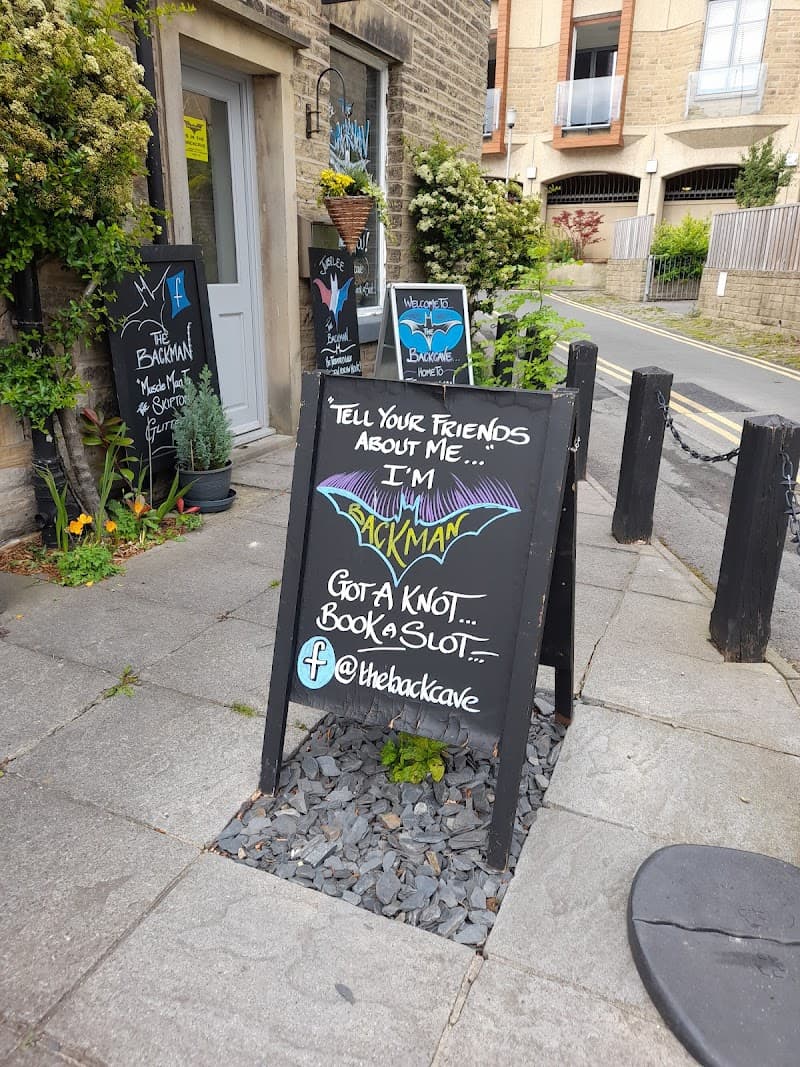 "TELL YOUR FRIENDS
ABOUT ME..."
I'M
BACKMAN
GOT A KNOT...
BOOK A SLOT...
f @thebackcave
f
THE
BACKMAN
"MUSCLE MAN
SKIPTO
GLITT
JUBILEE
THE
BACKMAN
WELCOME TO
BACKCAVE...
HOME TO
BACKMAN